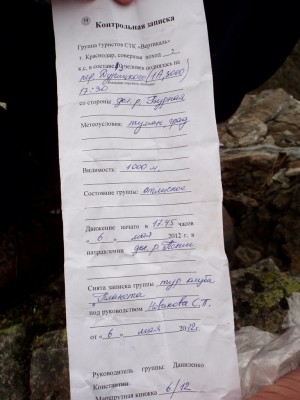 Контрольная записка
Группа туристов СТК «Вертикаль»
г. Краснодар, совершая поход 2
к.с. в составе человек поднялась на
пер. (1А, 3000)
17:30
со стороны дол. р. Бурная
Метеоусловия: туман, град
Видимость: 1000 м.
Состояние группы: отличное
Движение начато в 17.45 часов
« 6 » мая 2012 г. в
направлении дол. р.
Снята записка группы тур клуба
Планета
под руководством С.П.
от « 6 » мая 2012г.
Руководитель группы: Даниленко
Константин.
Маршрутная книжка 6/12